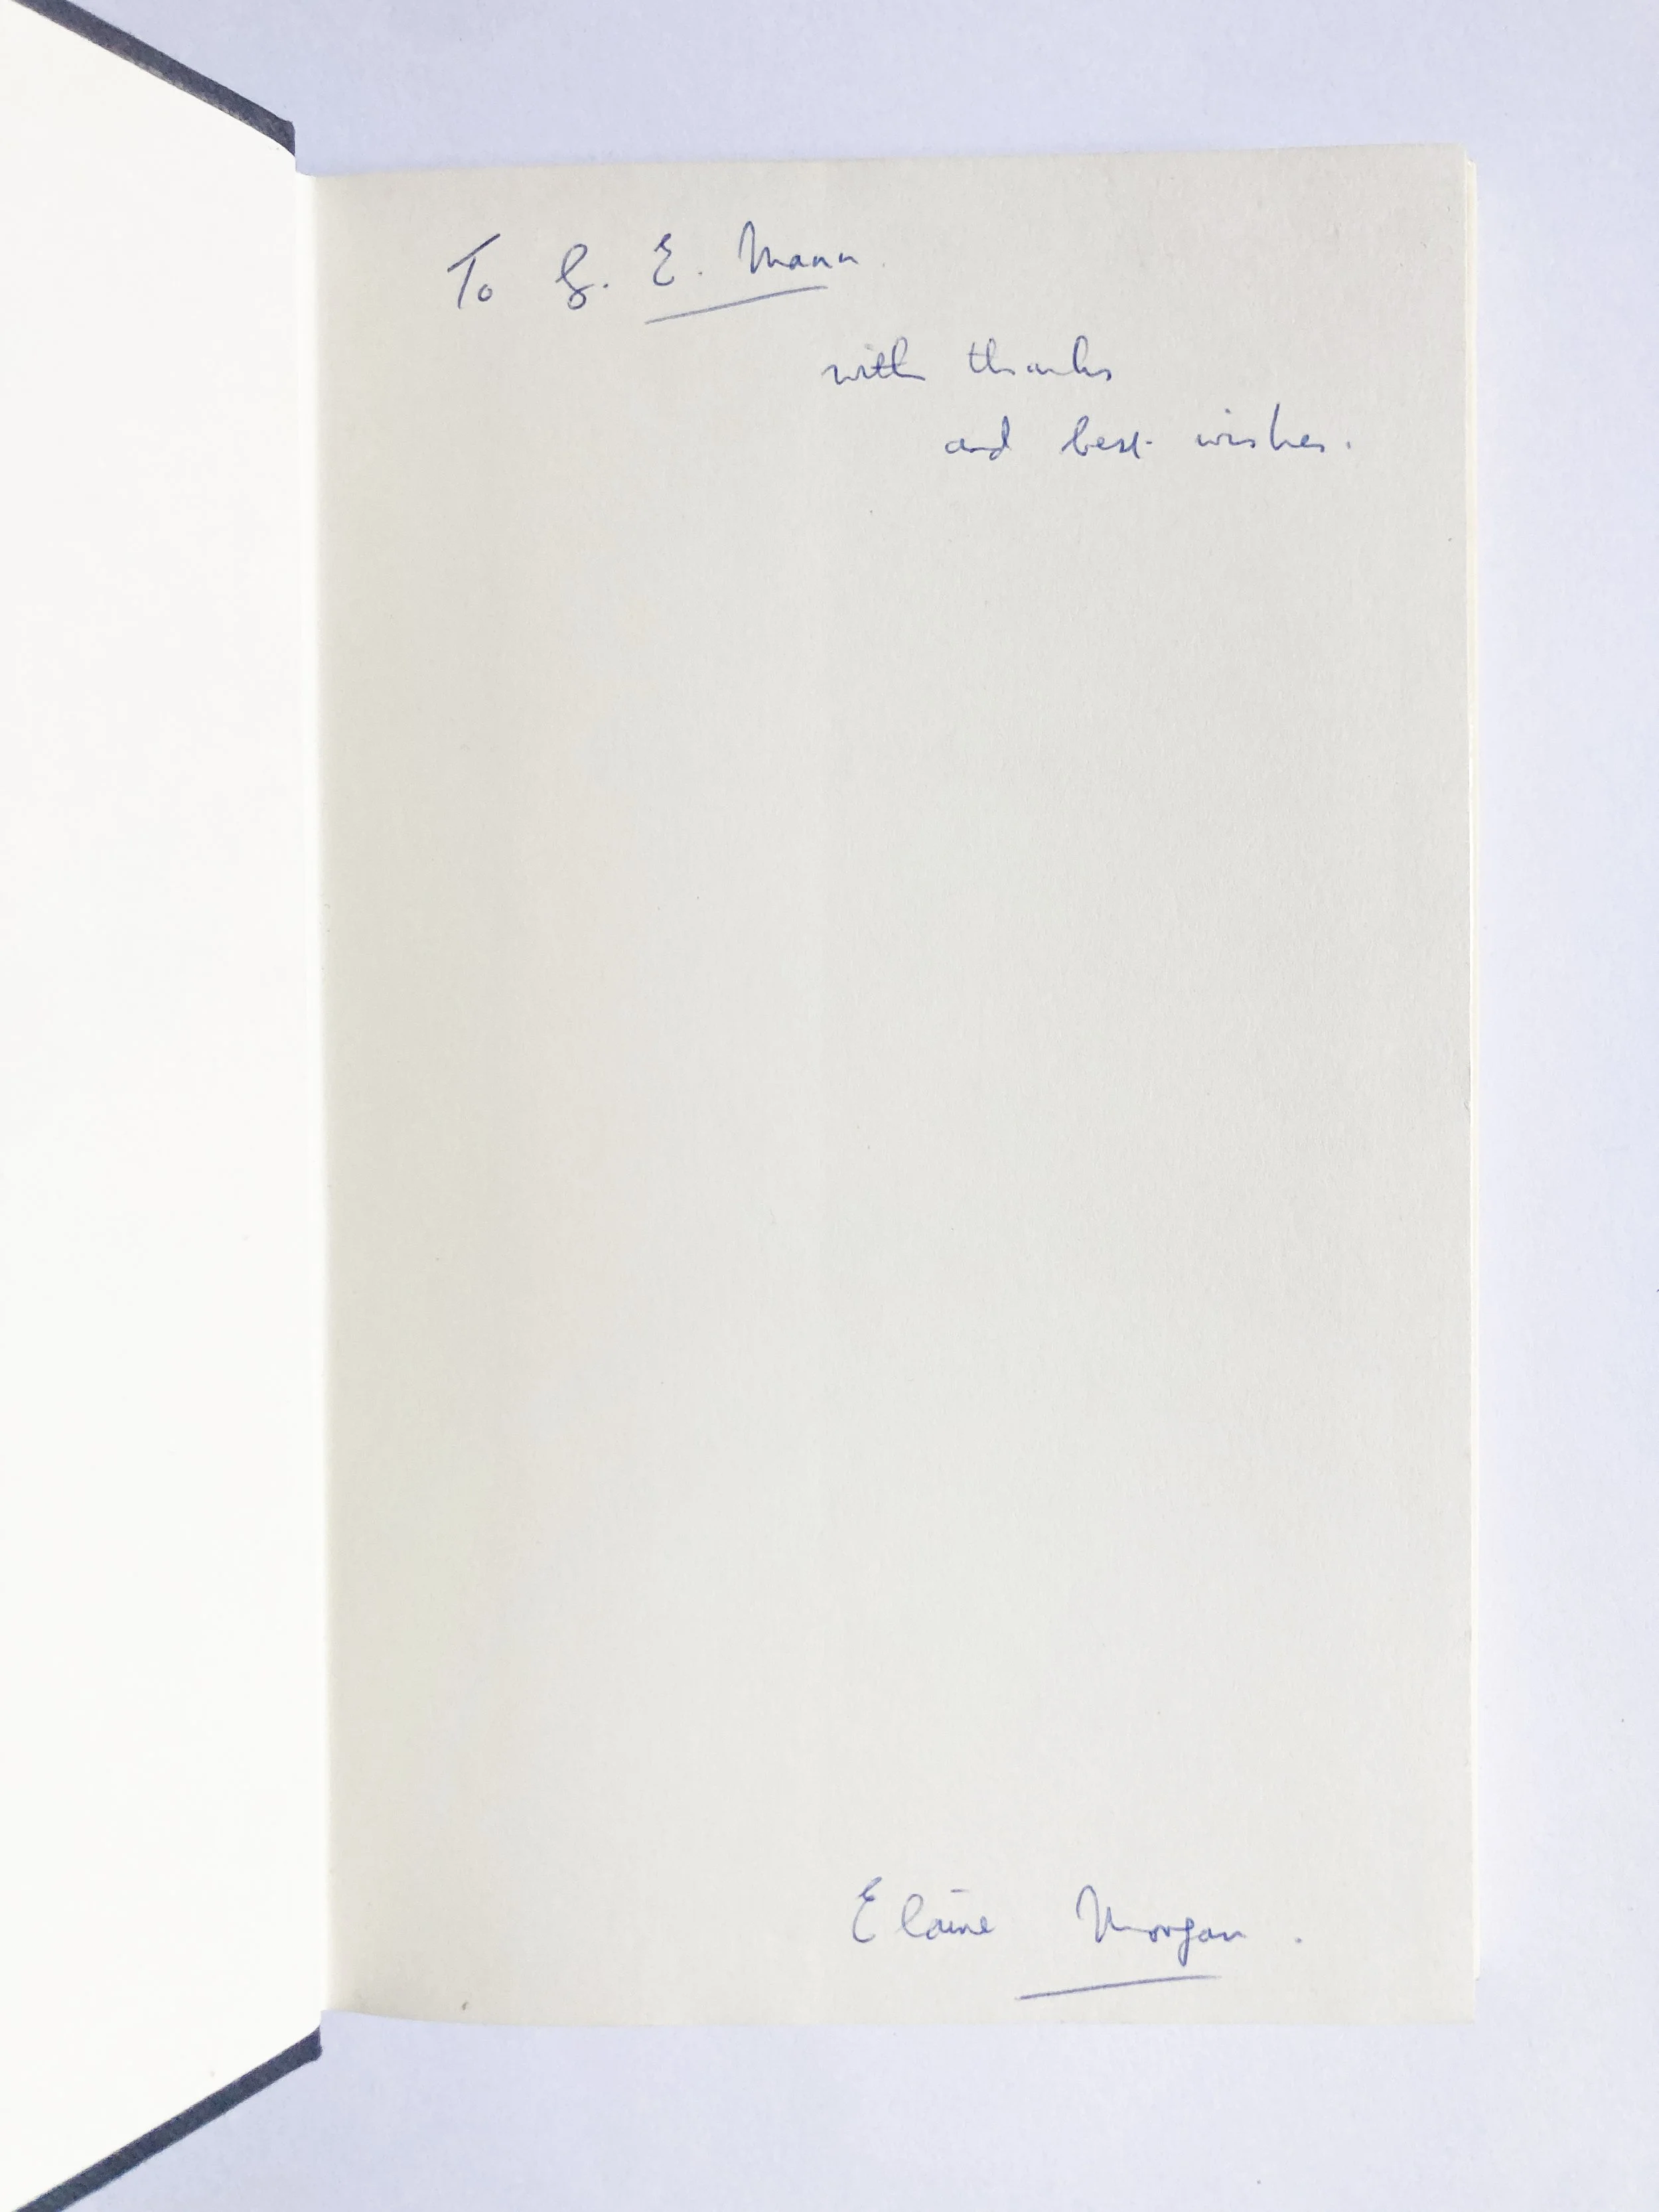 To G. E. Mann.
with thanks
and best wishes.
Elaine Morgan.